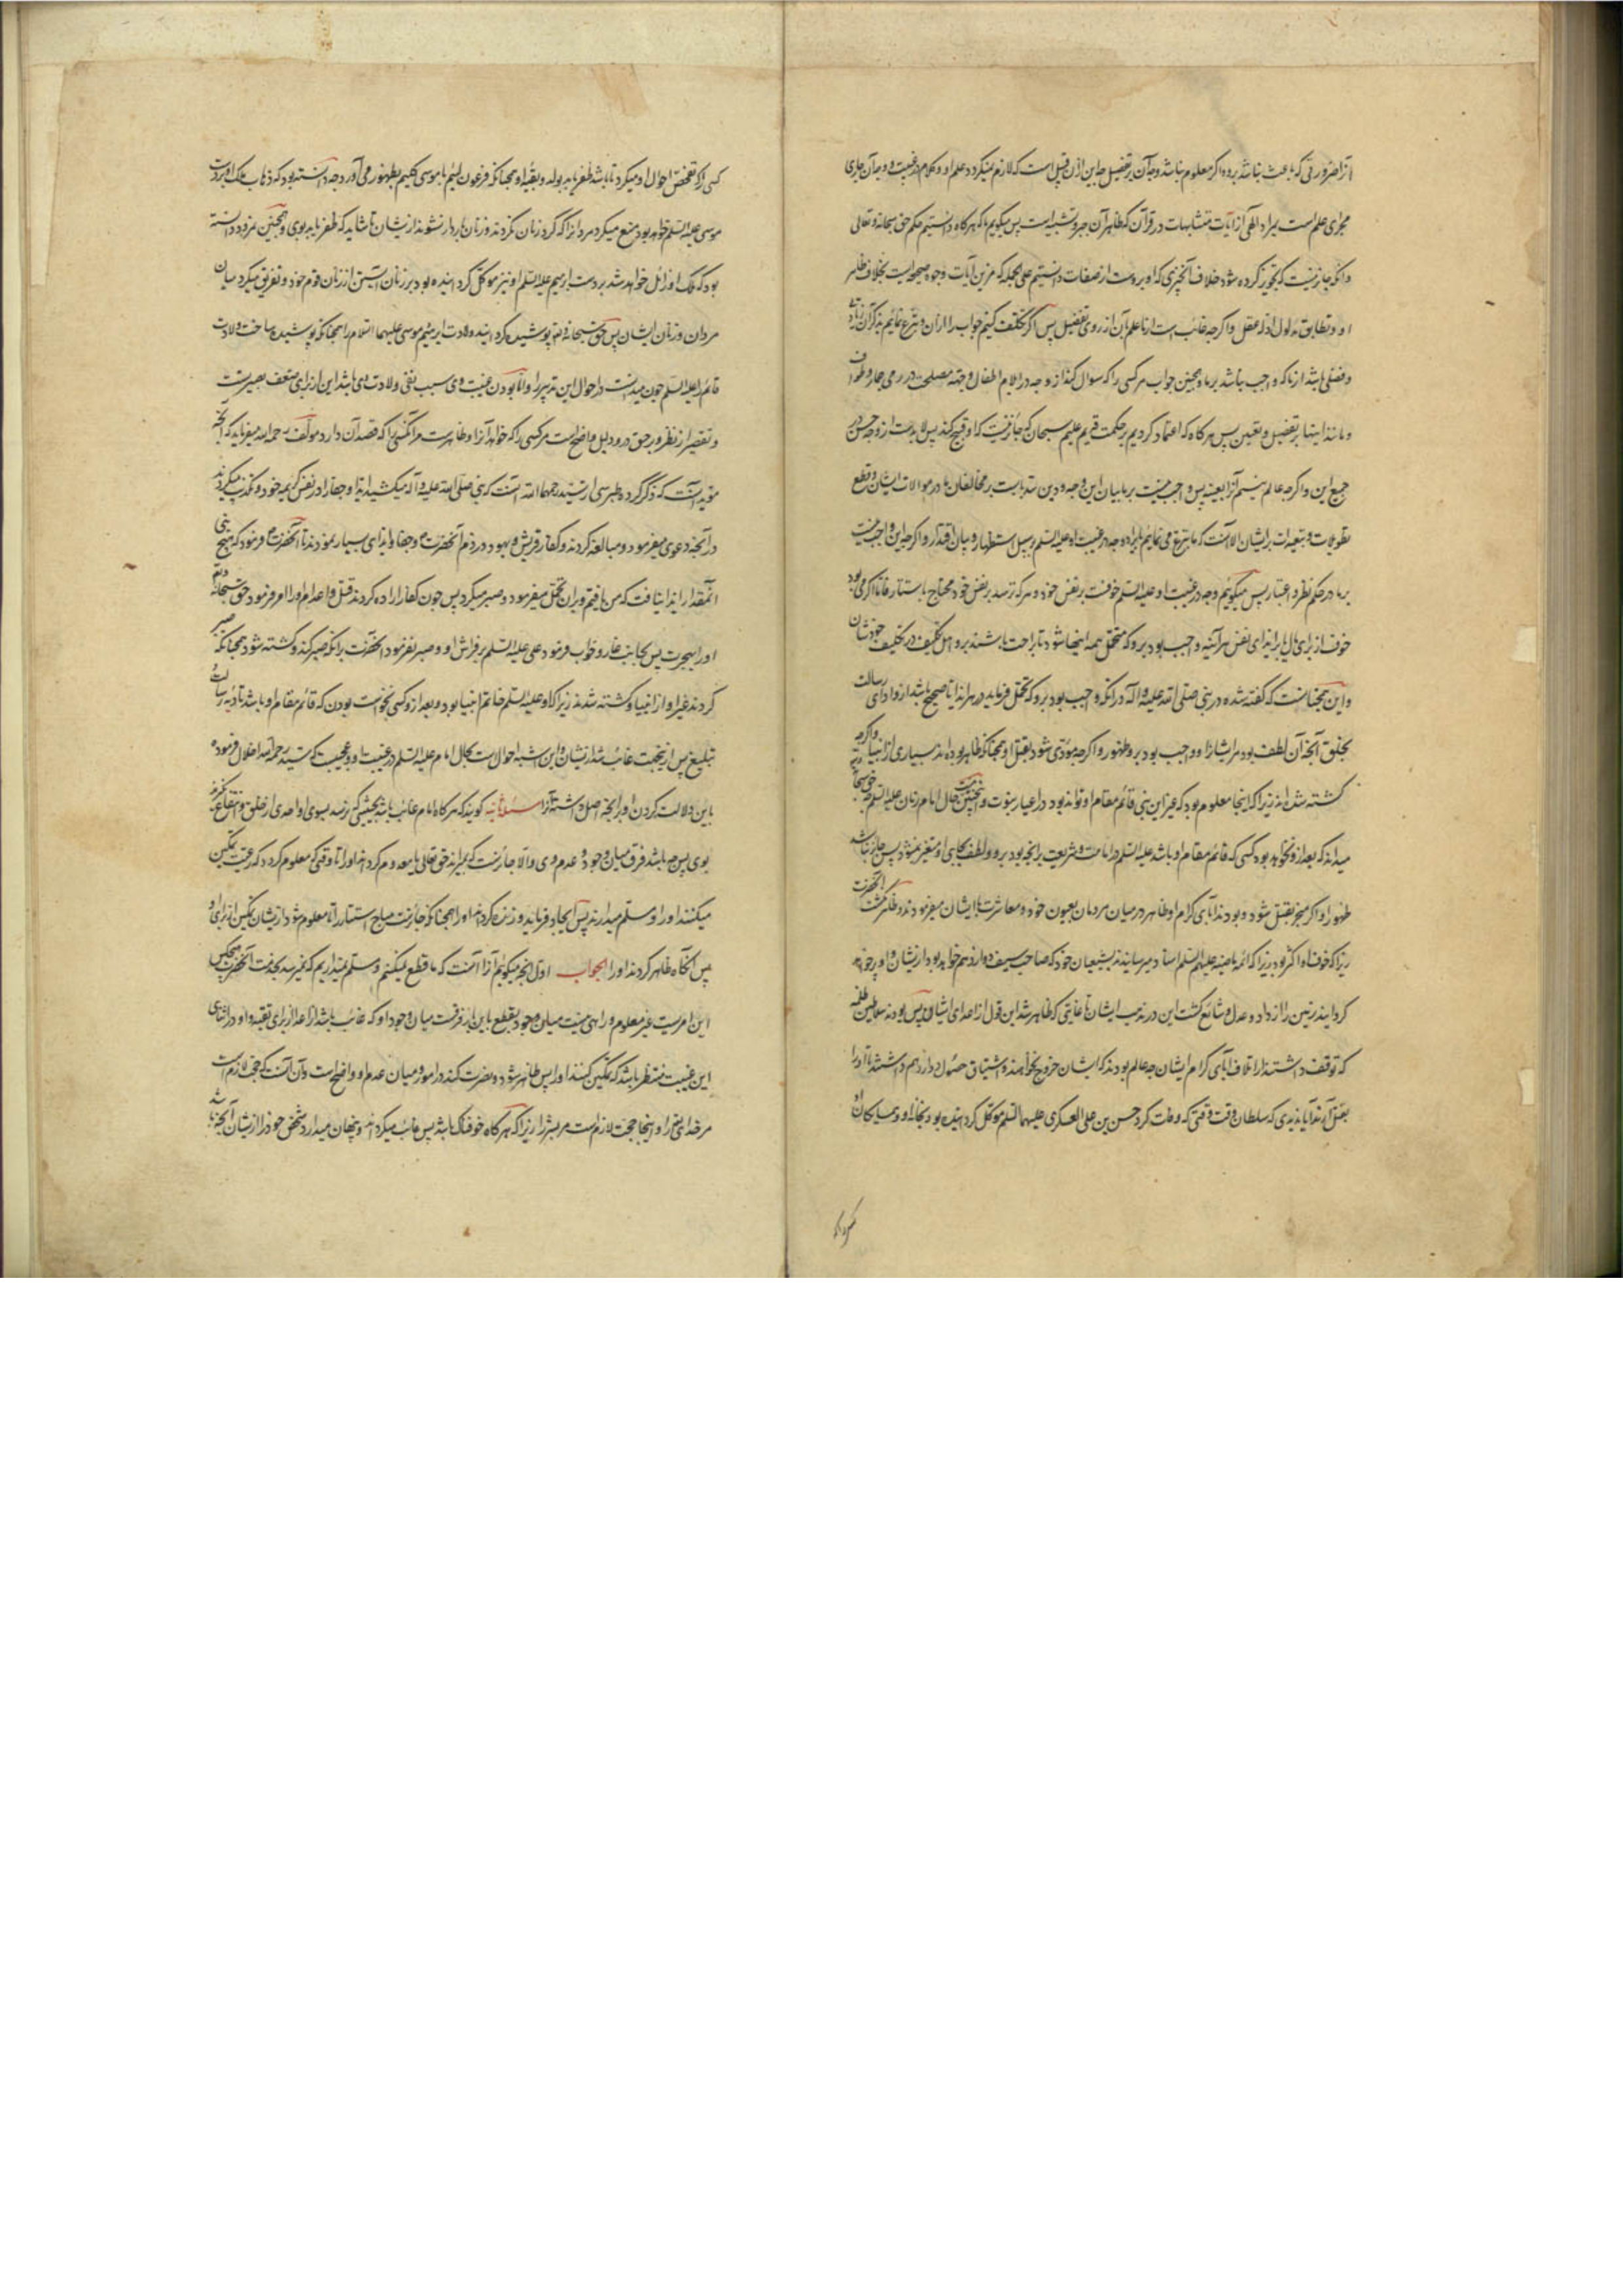 آنرا ضرورتی که باعث باشد برو و اگر معلوم نباشد وجه آن بر تفصیل چه این از آن قبیل است که لازم نمیگردد علم او و کلام در غیبت و وجه آن جاری
مجرای علم است بمراد الهی از آیات متشابهات در قرآن که ظاهر آن جبر و تشبیه است پس میگویم ما که هرگاه دانستیم حکم حق سبحانه و تعالی
و آنکه جائز نیست که تجویز کرده شود خلاف آنچیزی که او بروست از صفات دانستیم علی الجمله که مرین آیات وجوه صحیحه است بخلاف ظاهر
او و تطابق مدلول ادله عقل و اگرچه غائب است از ما علم بآن از روی تفصیل پس اگر تکلف کنیم جواب را از آن و تبرع نمائیم بذکر آن
و فضلی باشد از ما که واجب نباشد بر ما و همچنین جواب هر کسی را که سوال کند از وجه در ایلام اطفال و جهة مصلحت در رمی جمار و طواف
و مانند اینها بر تفصیل و تعیین پس هرگاه که اعتماد کردیم بر حکمت قدیم علیم سبحان که جائز نیست که او قبیح کند پس لابدست از وجه حسن در
جمیع این و اگرچه عالم نیستیم آنرا بعینه پس واجب نیست بر ما بیان این وجه و درین سد بابست بر مخالفان ما در سوالات ایشان و قطع
تطویلات و تبعیدات بر ایشان الا آنست که ما تبرع می نمائیم بایراد وجه در غیبت او علیه السلم بر سبیل استظهار و بیان اقتدار و اگرچه این واجب نیست
بر ما در حکم نظر و اعتبار پس میگوئیم وجه در غیبت او علیه السلم خوفست بر نفس خود و هر که ترسد بر نفس خود محتاج باستتار فاما اگر می بود
خوف از برای مال یا برای ایذای نفس هر آینه واجب بود برو که متحمل همه اینها شود تا براحت باشند برو اهل تکلیف در تکلیف خودشان
و این همچنانست که گفته شده در نبی صلی الله علیه و آله در آنکه واجب بود برو که تحمل فرماید هر ایذا تا صحیح باشد ازو ادای رسالت
بخلق آنچه آن لطف بود مر ایشانرا و واجب بود برو ظهور و اگرچه مؤدی شود بقتل او همچنانکه ظاهر بوده اند بسیاری از انبیا و اگرچه
کشته شده اند زیرا که اینجا معلوم بود که غیر این نبی قائم مقام او تواند بود در اعبار نبوت و همچنین نیست حال امام زمان علیه السلم چه حق سبحانه
میداند که بعد ازو نخواهد بود کسی که قائم مقام او باشد علیه السلم در امامت و شریعت بر آنچه بود برو و لطف بجای او متغیر نمیشود پس جائز نباشد
ظهور او اگر منجر بقتل شود و بودند آبای کرام او ظاهر در میان مردمان بعیون خود و معاشرت با ایشان میفرمودند و ظاهر نگشت آنحضرت
زیرا که خوف او اکثر بود زیرا که ائمه ماضیه علیهم السلم اسناد میرسانیدند بشیعیان خود که صاحب سیف دوازدهم خواهد بود از ایشان و او پر خواهد
گردانید زمین را از داد و عدل و شائع گشت این در مذهب ایشان تا غایتی که ظاهر شد این قول از اعدای ایشان پس بودند سلاطین ظلمه
که توقف داشتند از اتلاف آبای کرام ایشان چه عالم بودند که ایشان خروج نخواهند و اشتیاق حصول دوازدهم داشتند تا او را
بقتل آرند آیا ندیدی که سلطان وقت وقتی که وفات کرد حسن بن علی العسکری علیهما السلم موکل گردانیده بود بخانه او و همسایگان او
کسی را که تفحص احوال او میکرد تا باشد ظفر یابد بولد و بقیه او همچنانکه فرعون لئیم با موسی کلیم بظهور می آورد چه دانسته بود که ذهاب ملک او بردست
موسی علیه السلم خواهد بود منع میکرد مردانرا که گرد زنان نگردند و زنان باردار نشوند از ایشان تا شاید که ظفر یابد بوی و همچنین نمرود دانسته
بود که ملک او زائل خواهد شد بردست ابرهیم علیه السلم او نیز موکل گردانیده بود بر زنان آبستن از زنان قوم خود و تفریق میکرد میان
مردان و زنان ایشان پس حق سبحانه و تعالی پوشیده گردانید ولادت ابرهیم و موسی علیهما السلام را همچنانکه پوشیده ساخت ولادت
قائم را علیه السلم چون میدانست در احوال این تدبیر را و اما بودن غیبت وی سبب نفی ولادت وی باشد این از برای ضعف بصیرتست
و تقصیر از نظر و بر حق درو دلیل واضح است مر کسی را که خواهد آنرا و ظاهرست مر آنکسی را که قصد آن دارد مولف رحمه الله میفرماید که آنچه
مؤید آنست که ذکر کرده طبرسی از سید رحمهما الله آنست که نبی صلی الله علیه و آله میکشید ایذا و جفا را در نفس کریمه خود و تکذیب میکردند
در آنچه دعوی میفرمود و مبالغه کردند کفار قریش و یهود در ذم آنحضرت و جفا و ایذای بسیار نمودند تا آنحضرت فرمود که هیچ نبی
آنمقدار ایذا نیافت که من یافتم و بر آن تحمل میفرمود و صبر میکرد پس چون کفار اراده کردند قتل و اعدام او را امر فرمود حق سبحانه و تعالی
او را بهجرت پس بجانب غار و خواب فرمود علی علیه السلم بر فراش او و صبر نفرمود آنحضرت بر آنکه صبر کند و کشته شود همچنانکه صبر
کردند غیر او از انبیا و کشته شدند زیرا که او علیه السلم خاتم انبیا بود و بعد ازو کسی نخواست بودن که قائم مقام او باشد تادیه رسالت
تبلیغ پس از ینجهت غائب شد از ایشان و این اشبه احوالست بحال امام علیه السلم در غیبت او و عجبست که سید رحمه الله اخلال فرموده
باین دلالت کردن او بر آنچه اصل داشته آنرا مسئله ثانیه گویند که هرگاه امام غائب باشد بحیثیتی که نرسد بسوی او احدی از خلق و انتفاع نگیرند
بوی پس چه باشد فرق میان وجود و عدم وی و الا جائزست که بمیراند حق تعالی یا معدوم گرداند او را تا وقتی که معلوم گردد که رعیت تمکین
میکنند او را و مسلم میدارند پس ایجاد فرماید و زنده گرداند او را همچنانکه جائزست مباح استتار را تا معلوم شود از ایشان تمکین از برای او
پس آنگاه ظاهر گرداند او را الجواب اول آنچه میگوئیم آنرا آنست که ما قطع نمیکنیم و مسلم نمیداریم که نمیرسد بخدمت آنحضرت هیچکس
این امریست غیر معلوم و راهی نیست میان وجود بقطع باین باز فرقست میان وجود او که غائب باشد از اعدا از برای تقیه و او در اثنای
این غیبت منتظر باشد که تمکین کنند او را پس ظاهر شود و نصرت کند در امور و میان عدم او و واضح است و آن آنست که حجت لازمست
مر خدای تعالی را و اینجا حجت لازم است مر بشر را زیرا که هرگاه خوفناک باشد پس غائب میگرداند و پنهان میدارد شخص خود را از ایشان آنچه باشد